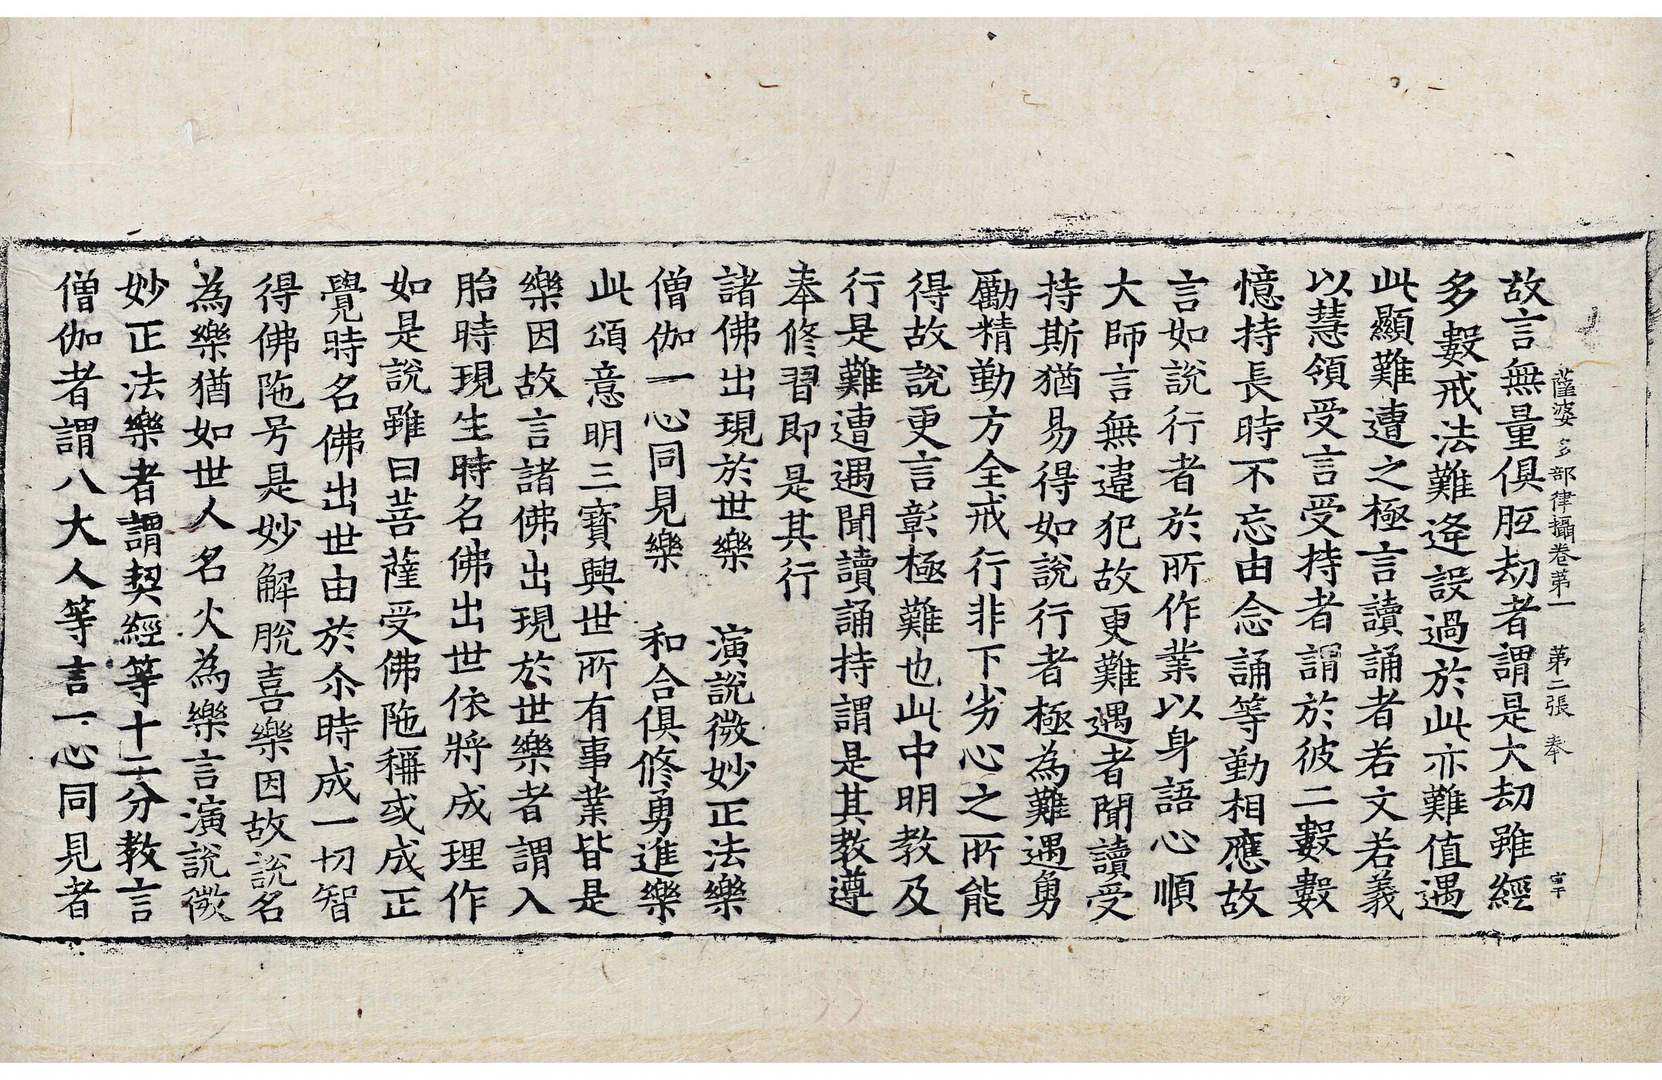 薩婆多部律攝卷第一　第二張　奉
故言無量俱胝劫者謂是大劫雖經
多數戒法難逢設過於此亦難值遇
此顯難遭之極言讀誦者若文若義
以慧領受言受持者謂於彼二數數
憶持長時不忘由念誦等勤相應故
言如說行者於所作業以身語心順
大師言無違犯故更難遇者聞讀受
持斯猶易得如說行者極為難遇勇
勵精勤方全戒行非下劣心之所能
得故說更言彰極難也此中明教及
行是難遭遇聞讀誦持謂是其教遵
奉修習即是其行
諸佛出現於世樂　演說微妙正法樂
僧伽一心同見樂　和合俱修勇進樂
此頌意明三寶興世所有事業皆是
樂因故言諸佛出現於世樂者謂入
胎時現生時名佛出世依將成理作
如是說雖曰菩薩受佛陁稱或成正
覺時名佛出世由於尒時成一切智
得佛陁号是妙解脫喜樂因故說名
為樂猶如世人名火為樂言演說微
妙正法樂者謂契經等十二分教言
僧伽者謂八大人等言一心同見者